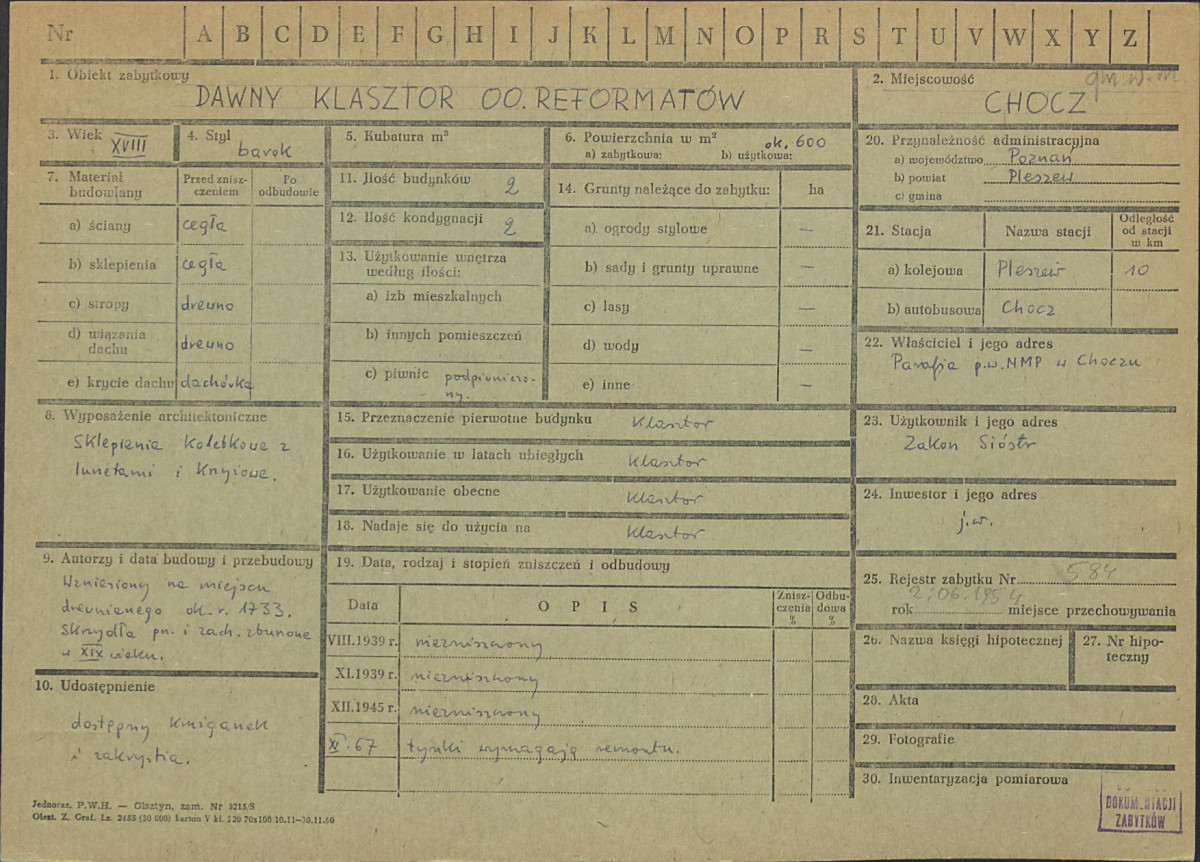 Nr A B C D E F G H I J K L M N O P R S T U V W X Y Z
1. Obiekt zabytkowy
DAWNY KLASZTOR OO. REFORMATÓW
2. Miejscowość
CHOCZ
3. Wiek XVIII
4. Styl
barok
5. Kubatura m³
6. Powierzchnia w m² ok. 600
a) zabytkowa: b) użytkowa:
7. Materiał budowlany
Przed znisz-
czeniem
Po
odbudowie
a) ściany cegła
b) sklepienia cegła
c) stropy drewno
d) wiązania
dachu drewno
e) krycie dachu dachówka
8. Wyposażenie architektoniczne
Sklepienia kolebkowe z
lunetami i
9. Autorzy i data budowy i przebudowy
Wzniesiony na miejscu
drewnianego ok. r. 1733.
Skrzydła pn. i zach. zburzone
w XIX wieku.
10. Udostępnienie
dostępny krużganek
i zakrystia.
11. Ilość budynków 2
12. Ilość kondygnacji 2
13. Użytkowanie wnętrza
według ilości:
a) izb mieszkalnych
b) innych pomieszczeń
c) piwnic podpiwniczo-
ny.
14. Grunty należące do zabytku: ha
a) ogrody stylowe —
b) sady i grunty uprawne —
c) lasy —
d) wody —
e) inne —
15. Przeznaczenie pierwotne budynku Klasztor
16. Użytkowanie w latach ubiegłych klasztor
17. Użytkowanie obecne klasztor
18. Nadaje się do użycia na klasztor
19. Data, rodzaj i stopień zniszczeń i odbudowy
Data OPIS Znisz-
czenia
% Odbu-
dowa
%
VIII.1939 r. niezniszczony
XI.1939 r. niezniszczony
XII.1945 r. niezniszczony
XI.67 tynki wymagają remontu.
20. Przynależność administracyjna
a) województwo Poznań
b) powiat Pleszew
c) gmina
21. Stacja Nazwa stacji Odległość
od stacji
w km
a) kolejowa Pleszew 10
b) autobusowa Chocz
22. Właściciel i jego adres
Parafia p.w. NMP w Choczu
23. Użytkownik i jego adres
Zakon Sióstr
24. Inwestor i jego adres
j.w.
25. Rejestr zabytku Nr 584
rok 2.06.1954 miejsce przechowywania
26. Nazwa księgi hipotecznej
27. Nr hipo-
teczny
28. Akta
29. Fotografie
30. Inwentaryzacja pomiarowa
DOKUMENTACJI
ZABYTKÓW
Jednoraz. P.W.H. — Olsztyn, zam. Nr 3215/S
Olszt. Z. Graf. Lz. 2455 (30 000) karton V kl. 220 70x100 10.11—30.11.60